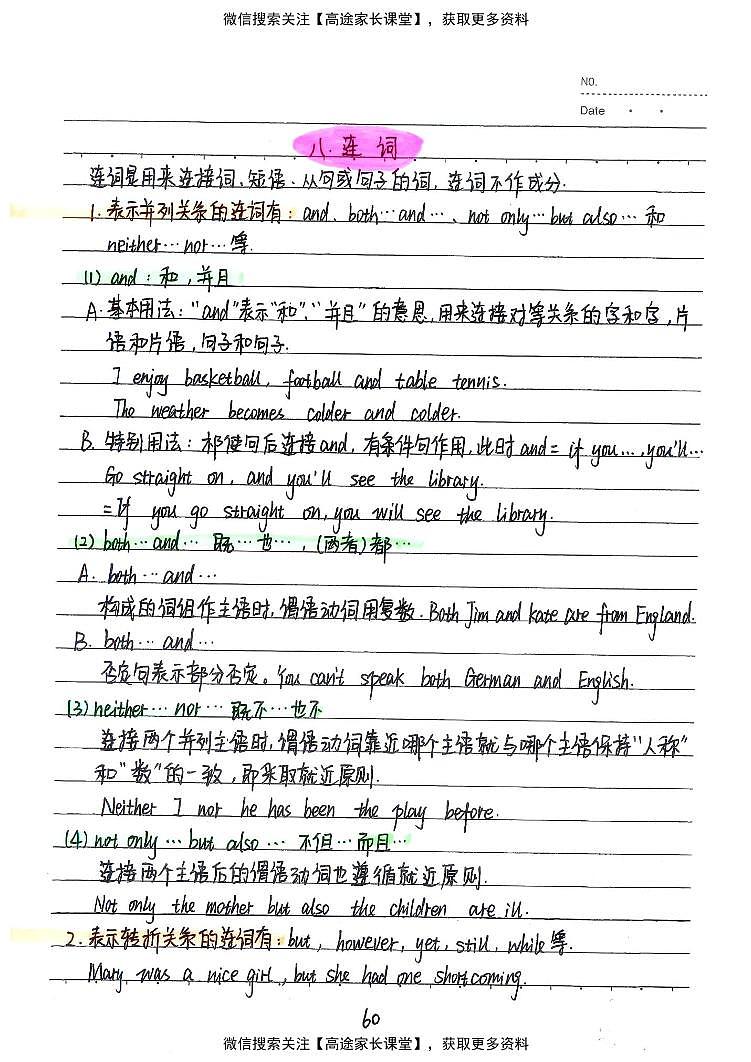 微信搜索关注【高途家长课堂】，获取更多资料
NO.
Date
八.连词
连词是用来连接词、短语、从句或句子的词，连词不作成分.
1.表示并列关系的连词有：and、both…and…、not only…but also…和
neither…nor…等.
(1) and：和，并且
A.基本用法："and"表示"和"、"并且"的意思，用来连接对等关系的字和字，片
语和片语，句子和句子.
I enjoy basketball, football and table tennis.
The weather becomes colder and colder.
B.特别用法：祁使句后连接and，有条件句作用，此时and=if you…,you'll…
Go straight on, and you'll see the library.
=If you go straight on, you will see the library.
(2) both…and… 既…也…，(两者)都…
A. both…and…
构成的词组作主语时，谓语动词用复数.Both Jim and Kate are from England.
B. both…and…
否定句表示部分否定。You can't speak both German and English.
(3) neither…nor…既不…也不
连接两个并列主语时，谓语动词靠近哪个主语就与哪个主语保持"人称"
和"数"的一致，即采取就近原则.
Neither I nor he has been the play before.
(4) not only…but also… 不但…而且…
连接两个主语后的谓语动词也遵循就近原则.
Not only the mother but also the children are ill.
2.表示转折关系的连词有：but, however, yet, still, while等.
Mary was a nice girl, but she had one shortcoming.
60
微信搜索关注【高途家长课堂】，获取更多资料